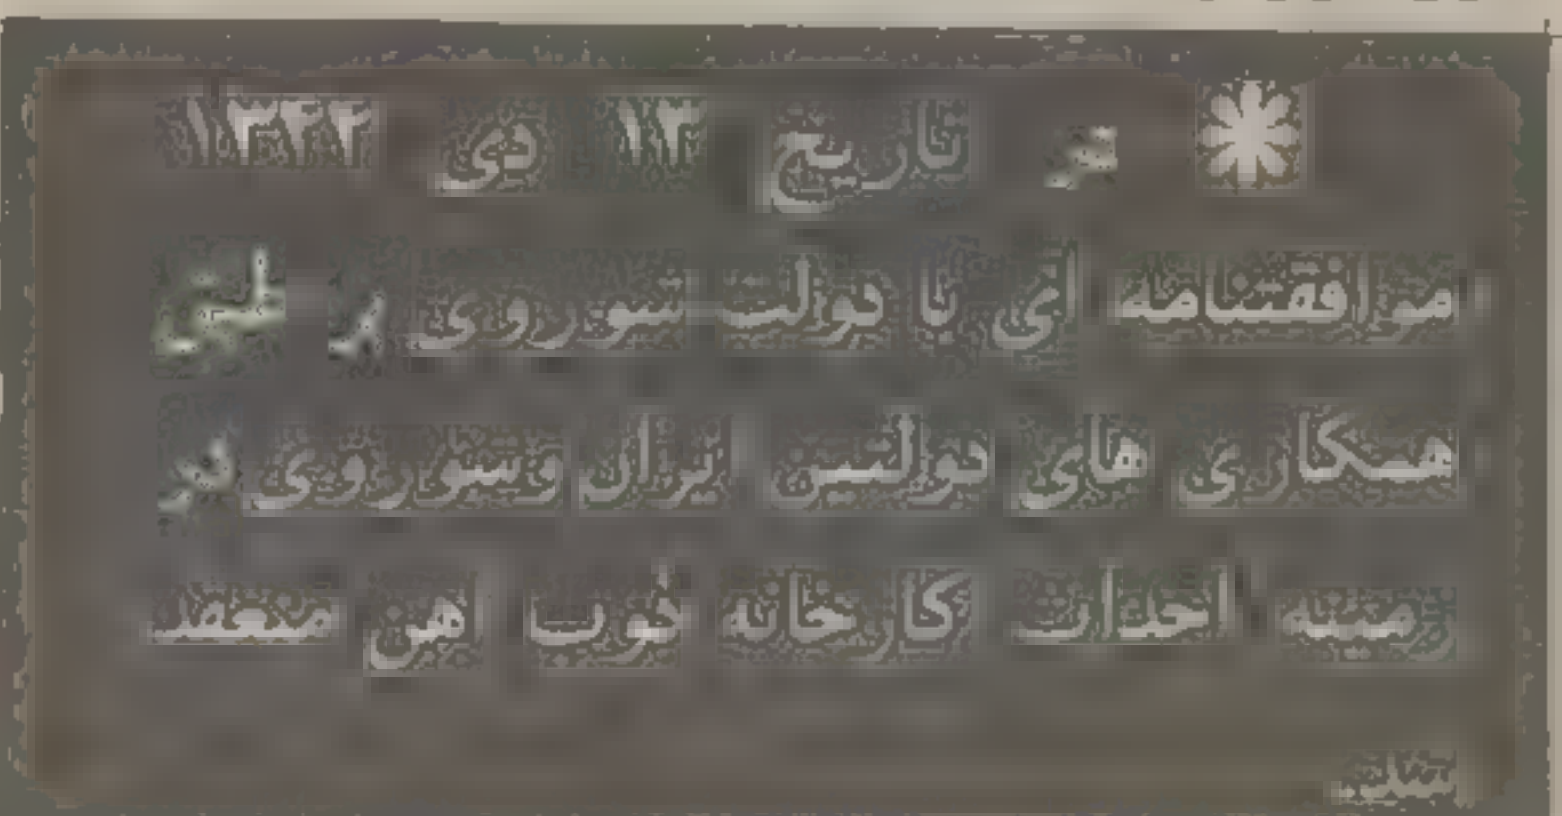 تاریخ ۱۳ دی ۱۳۴۴
موافقتنامه ای با دولت شوروی
همکاری های دولتین ایران وشوروی
زمینه احداث کارخانه ذوب اهن منعقد